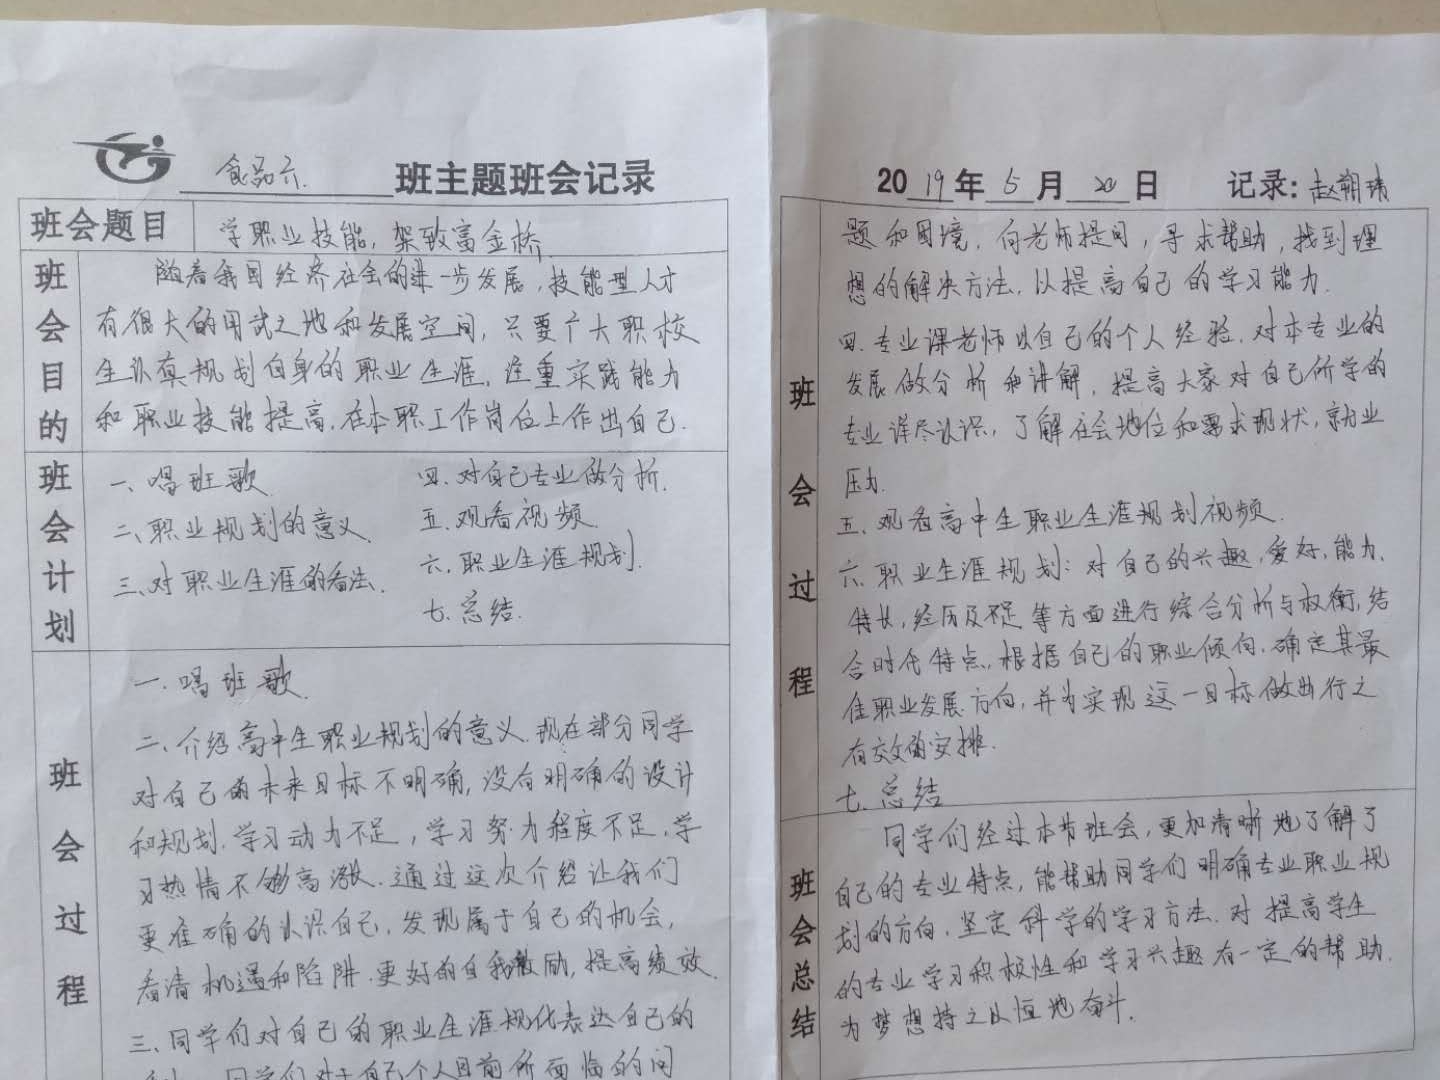 食品六 班主题班会记录
班会题目 学职业技能,架致富金桥.
班会目的
随着我国经济社会的进一步发展,技能型人才
有很大的用武之地和发展空间,只要广大职校
生认真规划自身的职业生涯,注重实践能力
和职业技能提高,在本职工作岗位上作出自己.
班会计划
一、唱班歌.
二、职业规划的意义.
三、对职业生涯的看法.
四.对自己专业做分析.
五.观看视频.
六.职业生涯规划.
七.总结.
班会过程
一.唱班歌.
二、介绍高中生职业规划的意义.现在部分同学
对自己的未来目标不明确,没有明确的设计
和规划.学习动力不足,学习努力程度不足,学
习热情不够高涨.通过这次介绍让我们
更准确的认识自己,发现属于自己的机会,
看清机遇和陷阱.更好的自我激励,提高绩效.
三、同学们对自己的职业生涯规代表达自己的
同学们对于自己个人目前所面临的问
2019年5月20日 记录:赵朔靖
班会过程
题和困境,向老师提问,寻求帮助,找到理
想的解决方法,以提高自己的学习能力.
四.专业课老师以自己的个人经验,对本专业的
发展做分析和讲解,提高大家对自己所学的
专业详尽认识,了解社会地位和需求现状,就业
压力.
五.观看高中生职业生涯规划视频.
六.职业生涯规划:对自己的兴趣,爱好,能力、
特长,经历及不足等方面进行综合分析与权衡,结
合时代特点,根据自己的职业倾向,确定其最
佳职业发展方向,并为实现这一目标做出行之
有效的安排.
七.总结
班会总结
同学们经过本节班会,更加清晰地了解了
自己的专业特点,能帮助同学们明确专业职业规
划的方向,坚定科学的学习方法.对提高学生
的专业学习积极性和学习兴趣有一定的帮助.
为梦想持之以恒地奋斗.